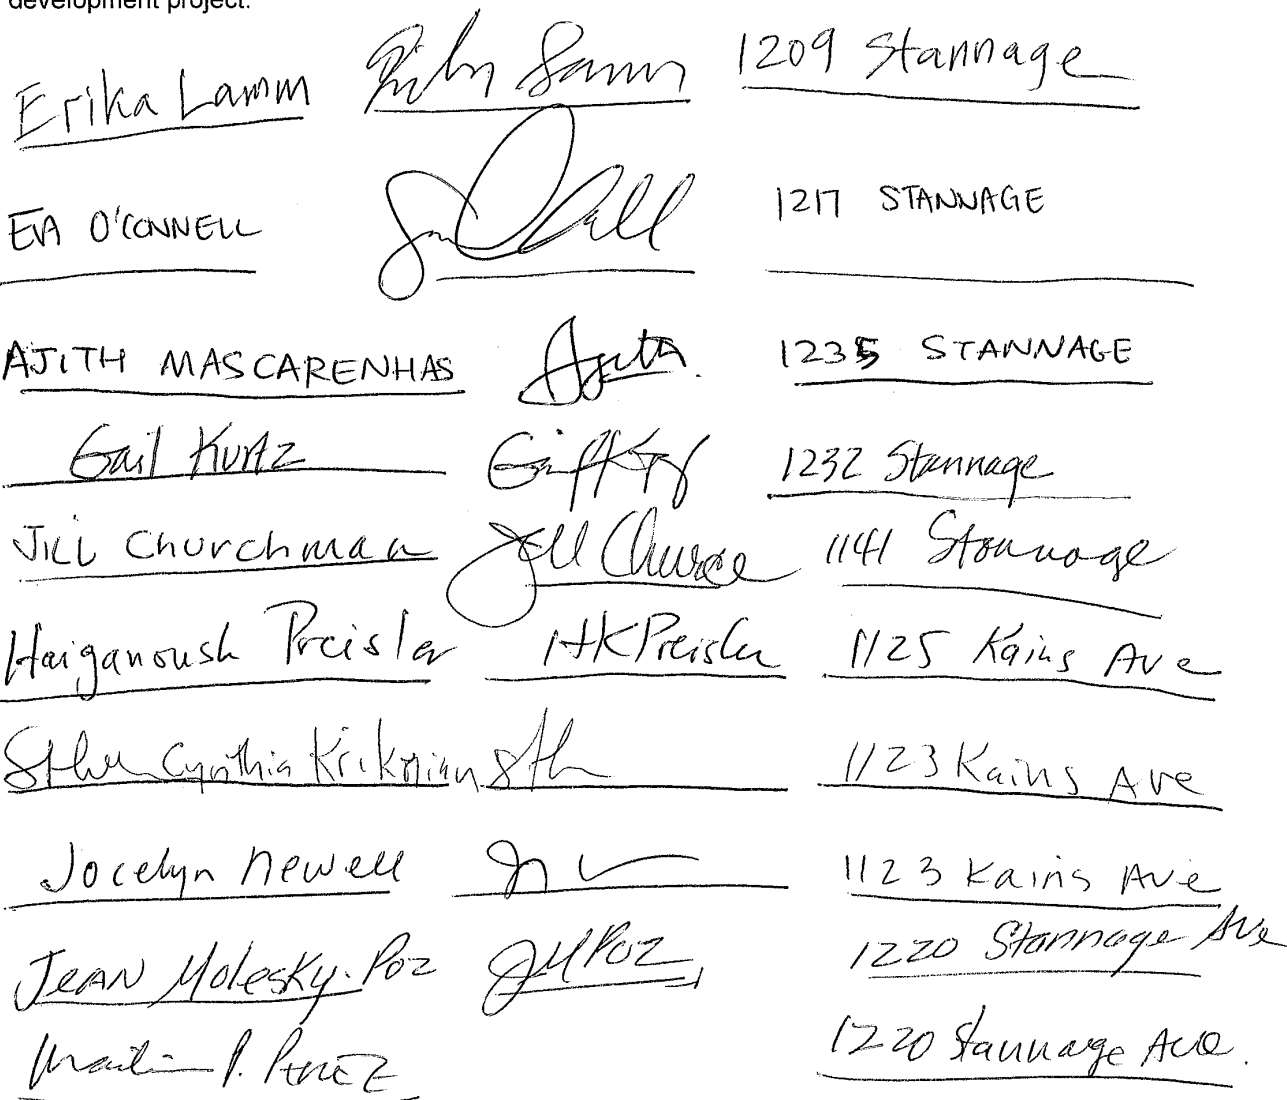 development project.
Erika Lamm 1209 Stannage
EVA O'CONNELL 1217 STANNAGE
AJITH MASCARENHAS Ajith. 1235 STANNAGE
Gail Kurtz 1232 Stannage
Jill Churchman Jill 1141 Stannage
Haiganoush Preisler HKPreisler 1125 Kains Ave
Cynthia Krikorian 1123 Kains Ave
Jocelyn Newell 1123 Kains Ave
JEAN Molesky-Poz JMPoz 1220 Stannage Ave
P. 1220 Stannage Ave.